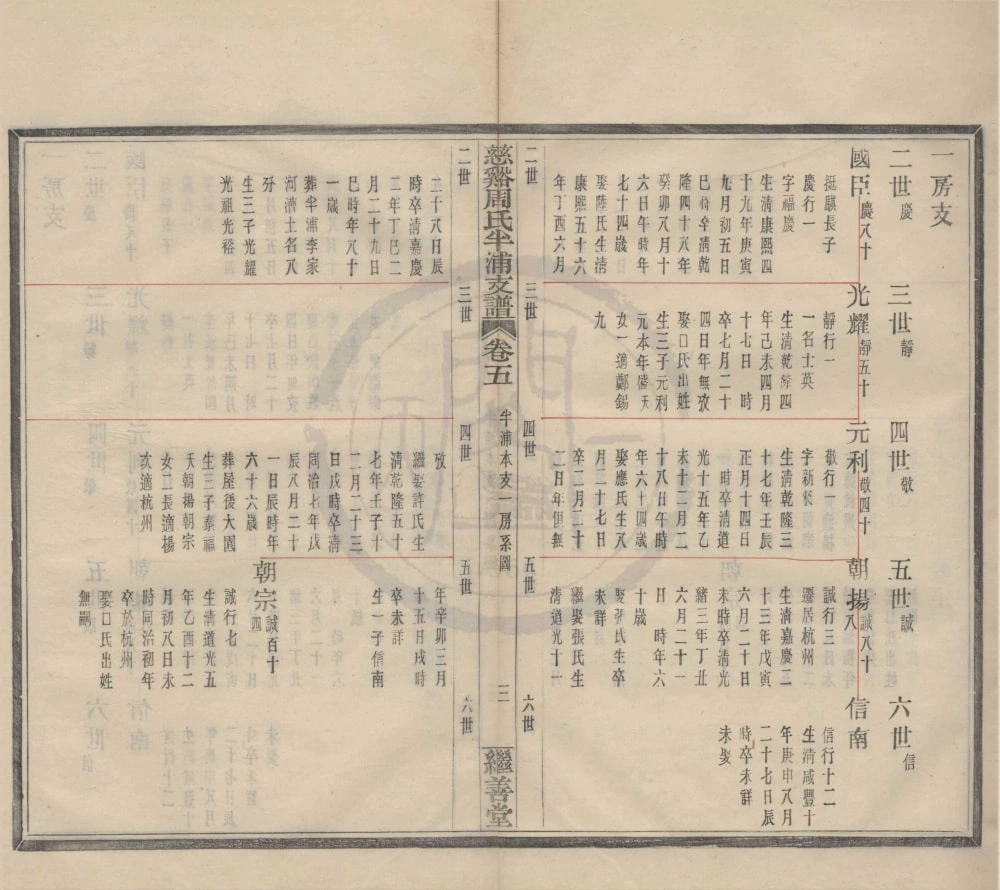 一房支
二世慶
三世靜
四世敬
五世誠
六世信
國臣慶八十
挺麒長子
慶行一
字福慶
生清康熙四
十九年庚寅
九月初五日
巳時卒清乾
隆四十八年
癸卯八月十
六日午時年
七十四歲
娶陸氏生清
康熙五十六
年丁酉六月
光耀靜五十
靜行一
一名士英
生清乾隆四
年己未四月
十七日 時
卒七月二十
四日年無攷
娶口氏出姓
生三子元利
元本年盛夭
女一適鄭錫
九
元利敬四十
敬行一
字新
生清乾隆三
十七年壬辰
正月十四日
時卒清道
光十五年乙
未十二月二
十八日午時
年六十四歲
娶應氏生八
月二十七日
卒三月二十
二日年俱無
朝揚誠八十八
誠行三
遷居杭州
生清嘉慶二
十三年戊寅
六月二十日
未時卒清光
緒三年丁丑
六月二十一
日 時年六
十歲
娶張氏生卒
未詳
繼娶張氏生
清道光十一
信南
信行十二
生清咸豐十
年庚申八月
二十七日辰
時卒未詳
未娶
二世
三世
四世
五世
六世
慈谿周氏半浦支譜
卷五
半浦本支一房系圖
三
繼善堂
二世
三世
四世
五世
六世
二十八日辰
時卒清嘉慶
二年丁巳二
月二十九日
巳時年八十
一歲
葬半浦李家
河漕土名八
分
生三子光耀
光祖光裕
攷
繼娶許氏生
清乾隆五十
七年壬子十
二月二十三
日戌時卒清
同治七年戊
辰八月二十
一日辰時年
六十六歲
葬屋後大園
生三子泰福
夭朝揚朝宗
女二長適楊
次適杭州
年辛卯三月
十五日戌時
卒未詳
生一子信南
朝宗誠百十四
誠行七
生清道光五
年乙酉十二
月初八日未
時同治初年
卒於杭州
娶口氏出姓
無嗣